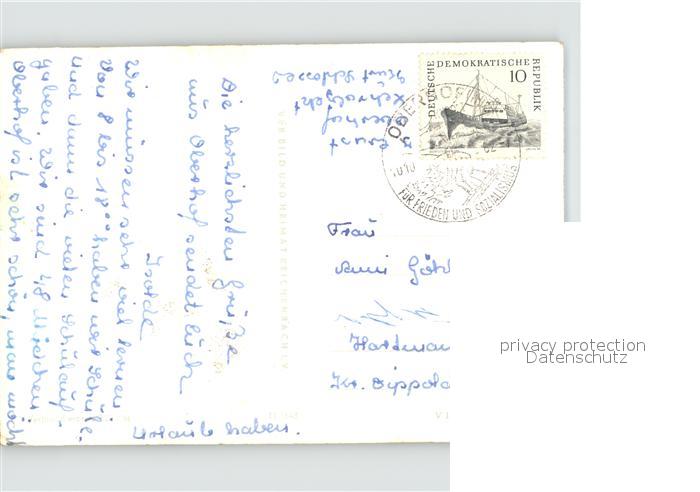 Die herzlichsten Grüße
aus Oberhof sendet Euch
Isolde
Wir müssen sehr viel lernen
Von 8 bis 18°° haben wir Schule
und dann die vielen Schulauf-
gaben. Wir sind 48 Mädchen
Oberhof ist sehr schön, man möcht
Urlaub haben.
Ernst
Kurt Schlosser
VEB BILD UND HEIMAT REICHENBACH V
DEUTSCHE DEMOKRATISCHE REPUBLIK
10
OBERHOF
FÜR FRIEDEN UND SOZIALISMUS
Frau
Anni
Hartman
Kr. Dippold
privacy protection
Datenschutz